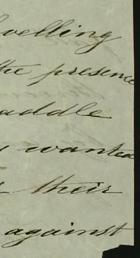 welling
the presence
addle
wanted
their
against